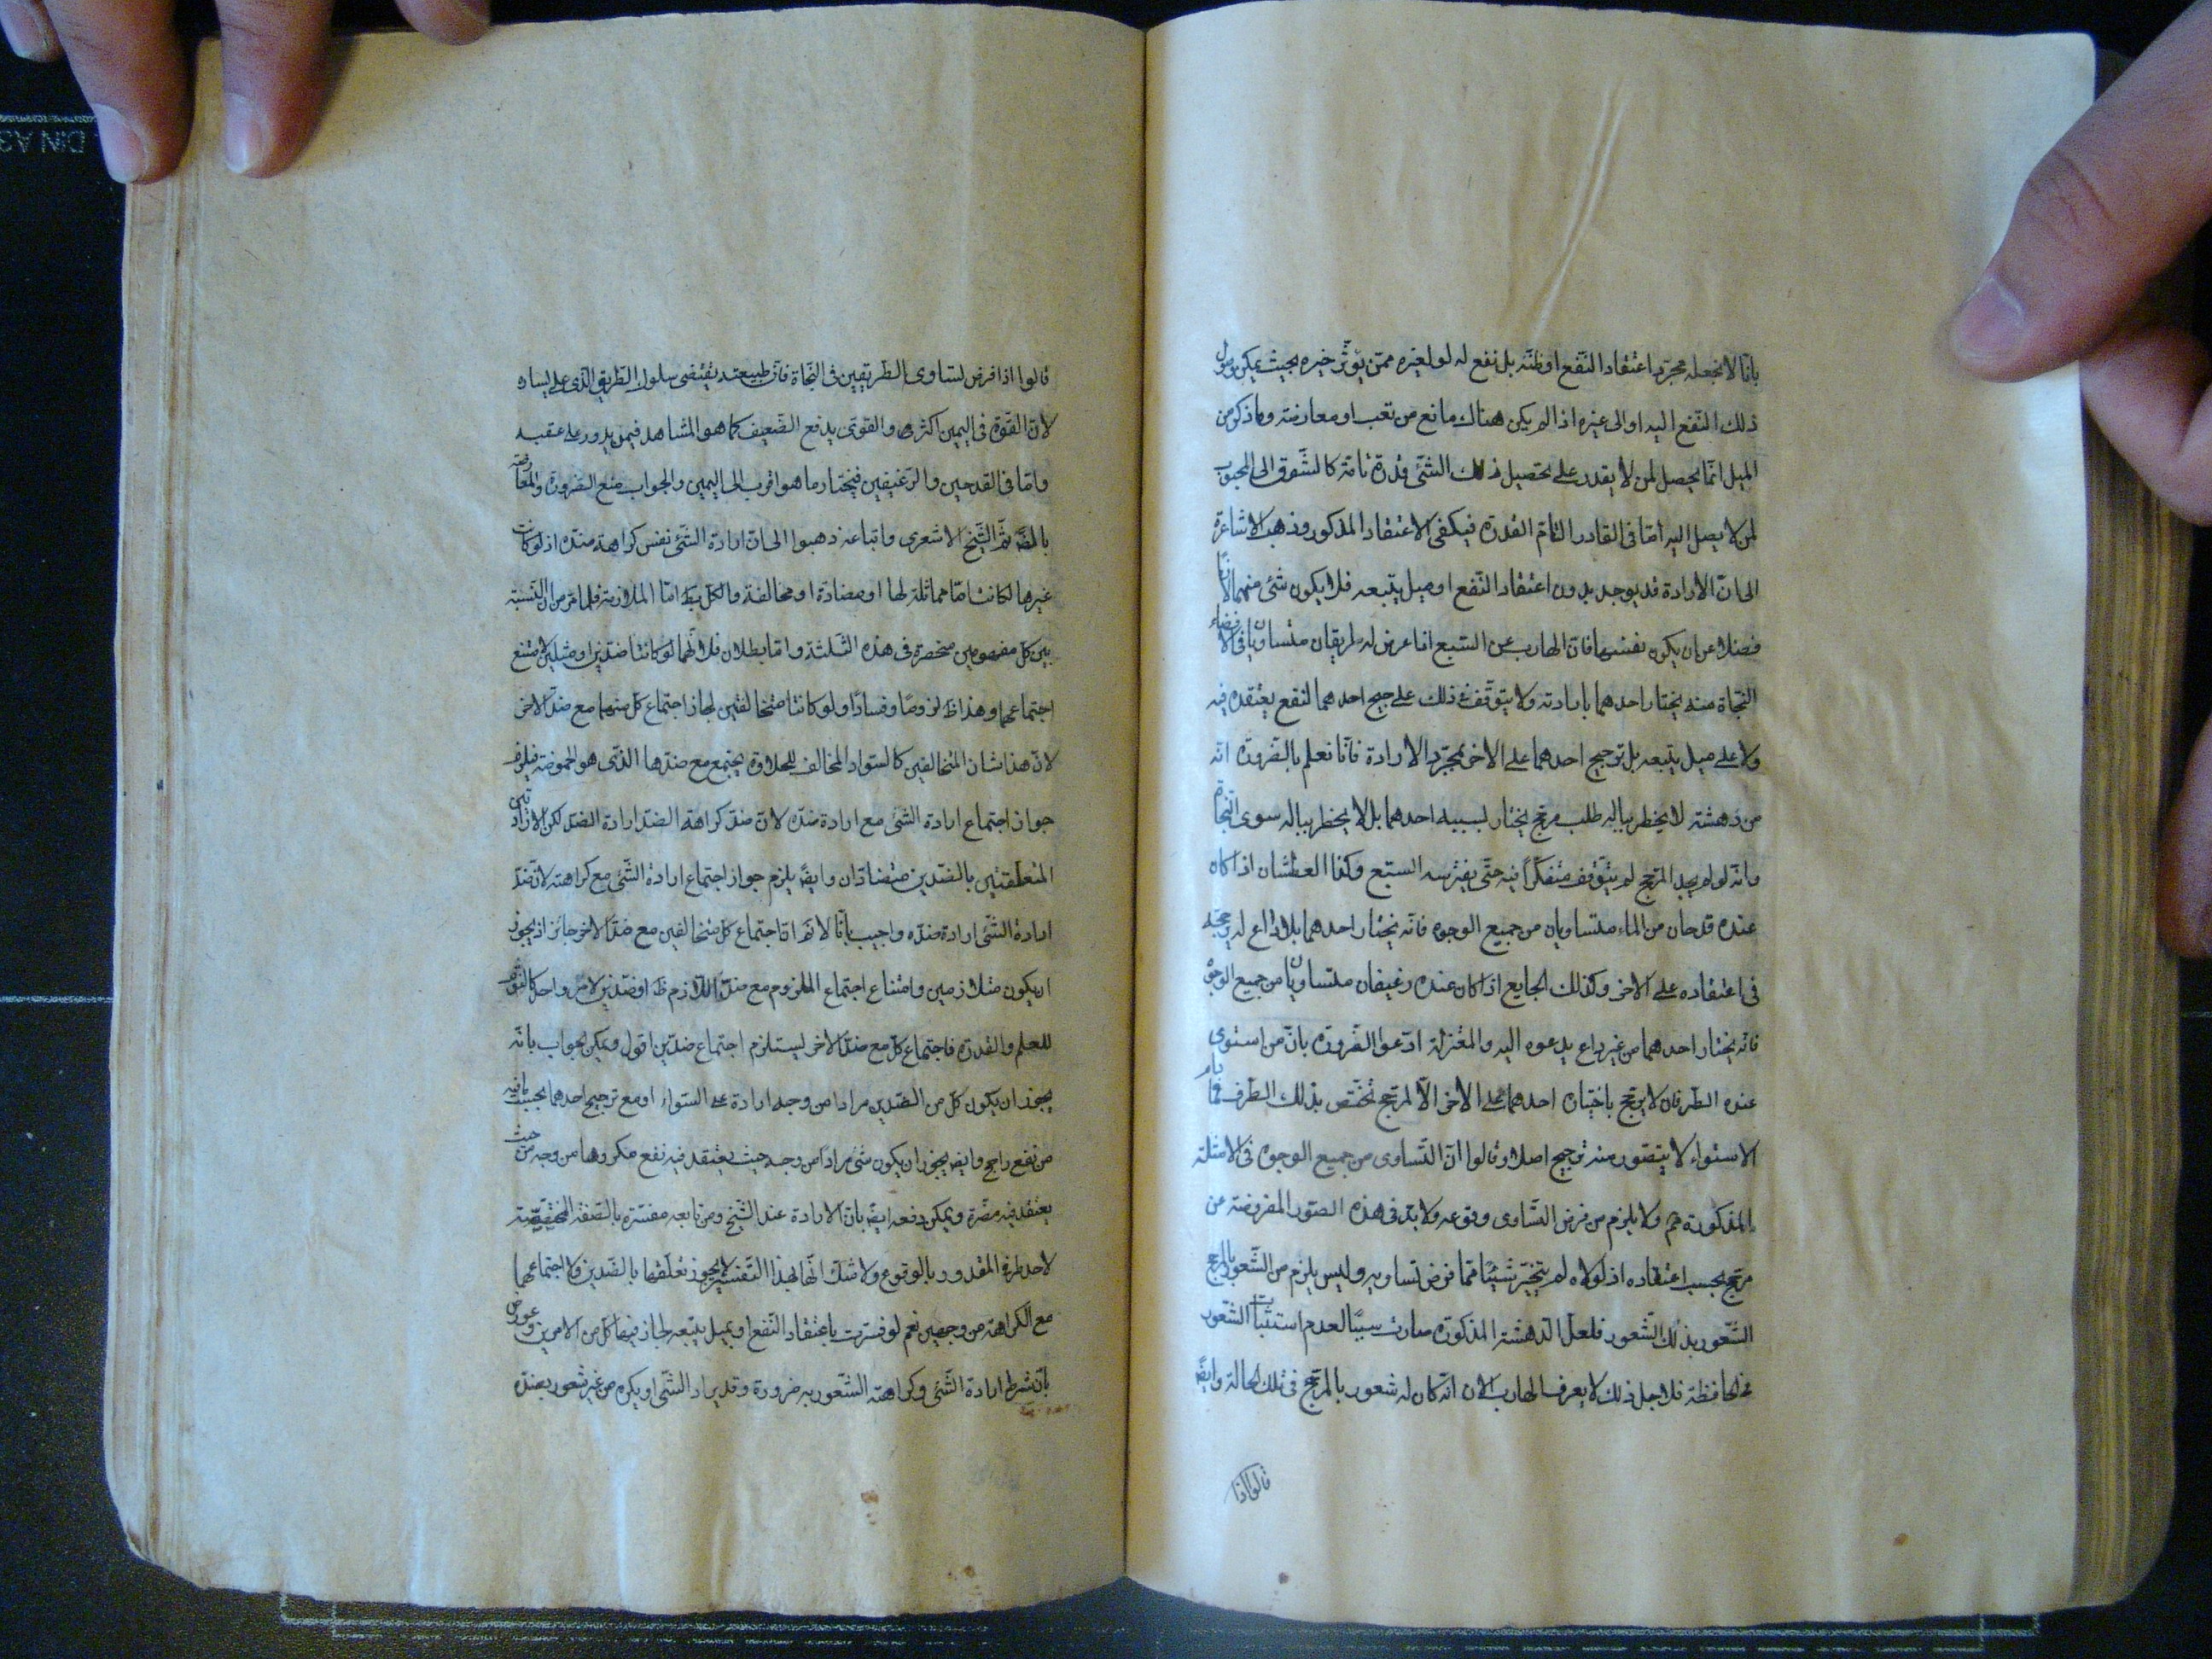 بانا لا نجعله مجرد اعتقاد النفع او ظنه بل نفع له او لغيره ممن يؤثر خيره بحيث يمكن وصول
ذلك النفع اليه او الى غيره اذا لم يكن هناك مانع من تعب او معارضة وما ذكر من
الميل انما يحصل لمن لا يقدر على تحصيل ذلك الشئ قدرة تامة كالشوق الى المحبوب
لمن لا يصل اليه اما فى القادر التام القدرة فيكفى الاعتقاد المذكور وذهب الاشاعرة
الى ان الارادة قد يوجد بدون اعتقاد النفع او ميل يتبعه فلا يكون شئ منهما لازما
فضلا عن ان يكون نفسهما فان الهارب من السبع اذا عرض له طريقان متساويان فى الافضاء
النجاة منه يختار احدهما بارادته ولا يتوقف فى ذلك على ترجيح احدهما لنفع يعتقده فيه
ولا على ميل يتبعه بل ترجيح احدهما على الاخر بمجرد الارادة فانا نعلم بالضرورة انه
من دهشته لا يخطر بباله طلب مرجح يختار بسببه احدهما بل لا يخطر بباله سوى النجاة
وانه لو لم يجد المرجح لم يتوقف متفكرا فيه حتى يفترسه السبع وكذا العطشان اذا كان
عنده قدحان من الماء متساويان من جميع الوجوه فانه يختار احدهما بلا داع له يرجحه
فى اعتقاده على الاخر وكذلك الجايع اذا كان عنده رغيفان متساويان من جميع الوجوه
فانه يختار احدهما من غير داع يدعوه اليه والمعتزلة ادعوا الضرورة بان من استوى
عنده الطرفان لا يرجح باختياره احدهما على الاخر الا لمرجح تختص بذلك الطرف فما دام
الاستواء لا يتصور منه ترجيح اصلا وقالوا ان التساوى من جميع الوجوه فى الامثلة
المذكورة مم ولا يلزم من فرض التساوى وقوعه ولا بد فى هذه الصور المفروضة من
مرجح بحسب اعتقاده اذ لولاه لم يتخير شيئا مما فرض تساويه وليس يلزم من الشعور بالمرجح
الشعور بذلك الشعور فلعل الدهشة المذكورة صارت سببا لعدم استثبات الشعور
فى الحافظة فلاجل ذلك لا يعرف الهارب الان انه كان له شعور بالمرجح فى تلك الحالة وايضا
قالوا اذا
قالوا اذا فرض تساوى الطريقين فى النجاة فان طبيعته تقتضى سلوك الطريق الذى على يساره
لان القوة فى اليمين اكثرها والقوى يدفع الضعيف كما هو المشاهد فيمن يدور على عقبه
واما فى القدحين والرغيفين فيختار ما هو اقرب الى اليمين والجواب منع الضرورة والمعارضة
ثم الشيخ الاشعرى واتباعه ذهبوا الى ان ارادة الشئ نفس كراهة ضده اذ لو كانت
غيرها لكانت اما مماثلة لها او مضادة او مخالفة والكل بط اما الملازمة فلما مر من ان النسبة
بين كل مفهومين منحصرة فى هذه الثلثة واما بطلان فلانهما لو كانتا ضدين او مثلين لامتنع
اجتماعهما وهذا ظ لزوما وفسادا ولو كانتا متخالفتين لجاز اجتماع كل منهما مع ضد الاخر
لان هذا شان المتخالفين كالسواد المخالف للحلاوة يجتمع مع ضدها الذى هو الحموضة فيلزم
جواز اجتماع ارادة الشئ مع ارادة ضده لان ضد كراهة الضد ارادة الضد لكن الارادتين
المتعلقتين بالضدين متضادتان وايضا يلزم جواز اجتماع ارادة الشئ مع كراهته لان ضد
ارادة الشئ ارادة ضده واجيب بانا لا نم ان اجتماع كل متخالفين مع ضد الاخر جائز اذ يجوز
ان يكون متلازمين وامتناع اجتماع الملزوم مع ضد اللازم ظ او ضدين لامر واحد كالنوم
للعلم والقدرة فاجتماع كل مع ضد الاخر يستلزم اجتماع ضدين اقول ويمكن الجواب بانه
يجوز ان يكون كل من الضدين مرادا من وجه ارادة على السواء او مع ترجيح احدهما بحسب ما فيه
من نفع راجح وايضا يجوز ان يكون شئ مرادا من وجه حيث يعتقد فيه نفع مكروها من وجه من حيث
يعتقد فيه مضرة ويمكن دفعه ايضا بان الارادة عند الشيخ ومن تابعه مفسرة بالصفة المخصصة
لاحد طرفى المقدور بالوقوع ولا شك انها بهذا التفسير لا يجوز تعلقها بالضدين ولا اجتماعها
مع الكراهة من وجهين نعم لو فسرت باعتقاد النفع او بميل يتبعه لجاز فيها كل من الامرين وعورض
بان شرط ارادة الشئ وكراهته الشعور به ضرورة وقد يراد الشئ او يكره من غير شعور بضده